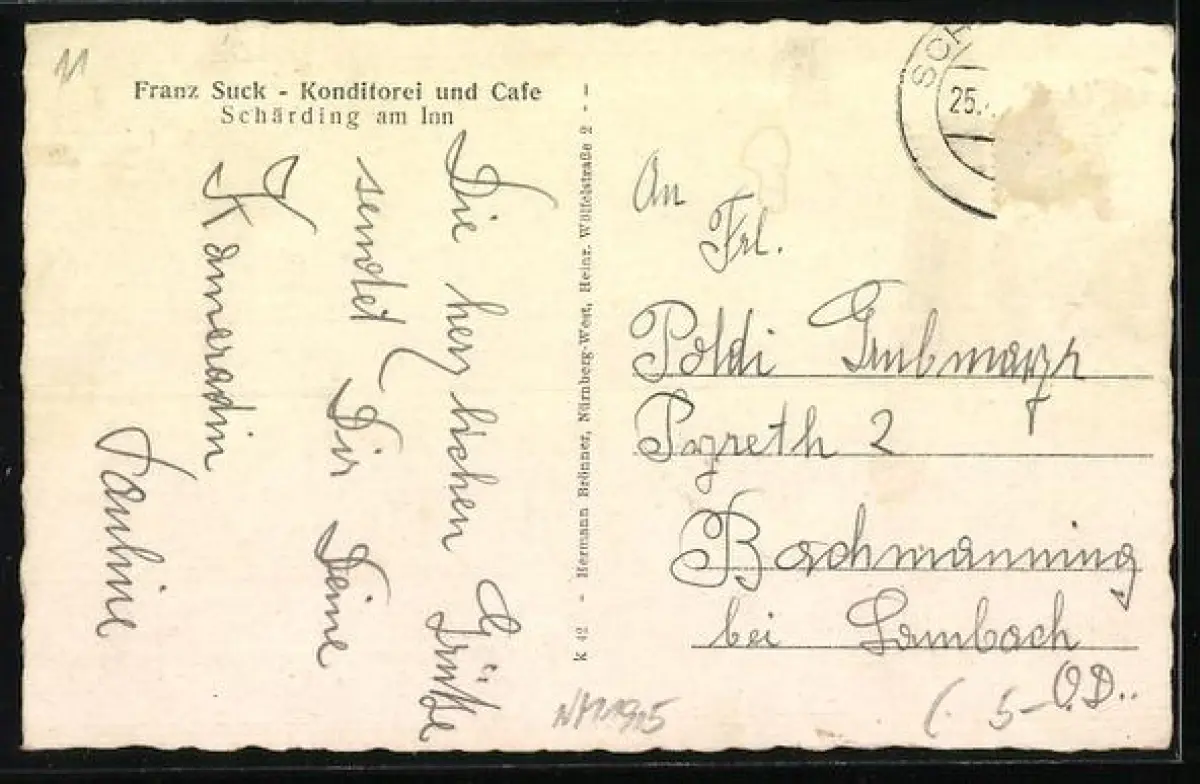 11
Franz Suck - Konditorei und Cafe
Schärding am Inn
Die herzlichen Grüße
sendet Dir Deine
Kameradin
Pauline
K 42 - Hermann Brönner, Nürnberg-West, Heinr. Wölfelstraße 2 - -
SCH
25.
An
Frl.
Poldi Grubmayr
Pogreth 2
Bachmanning
bei Lambach
O.D..
( 5-